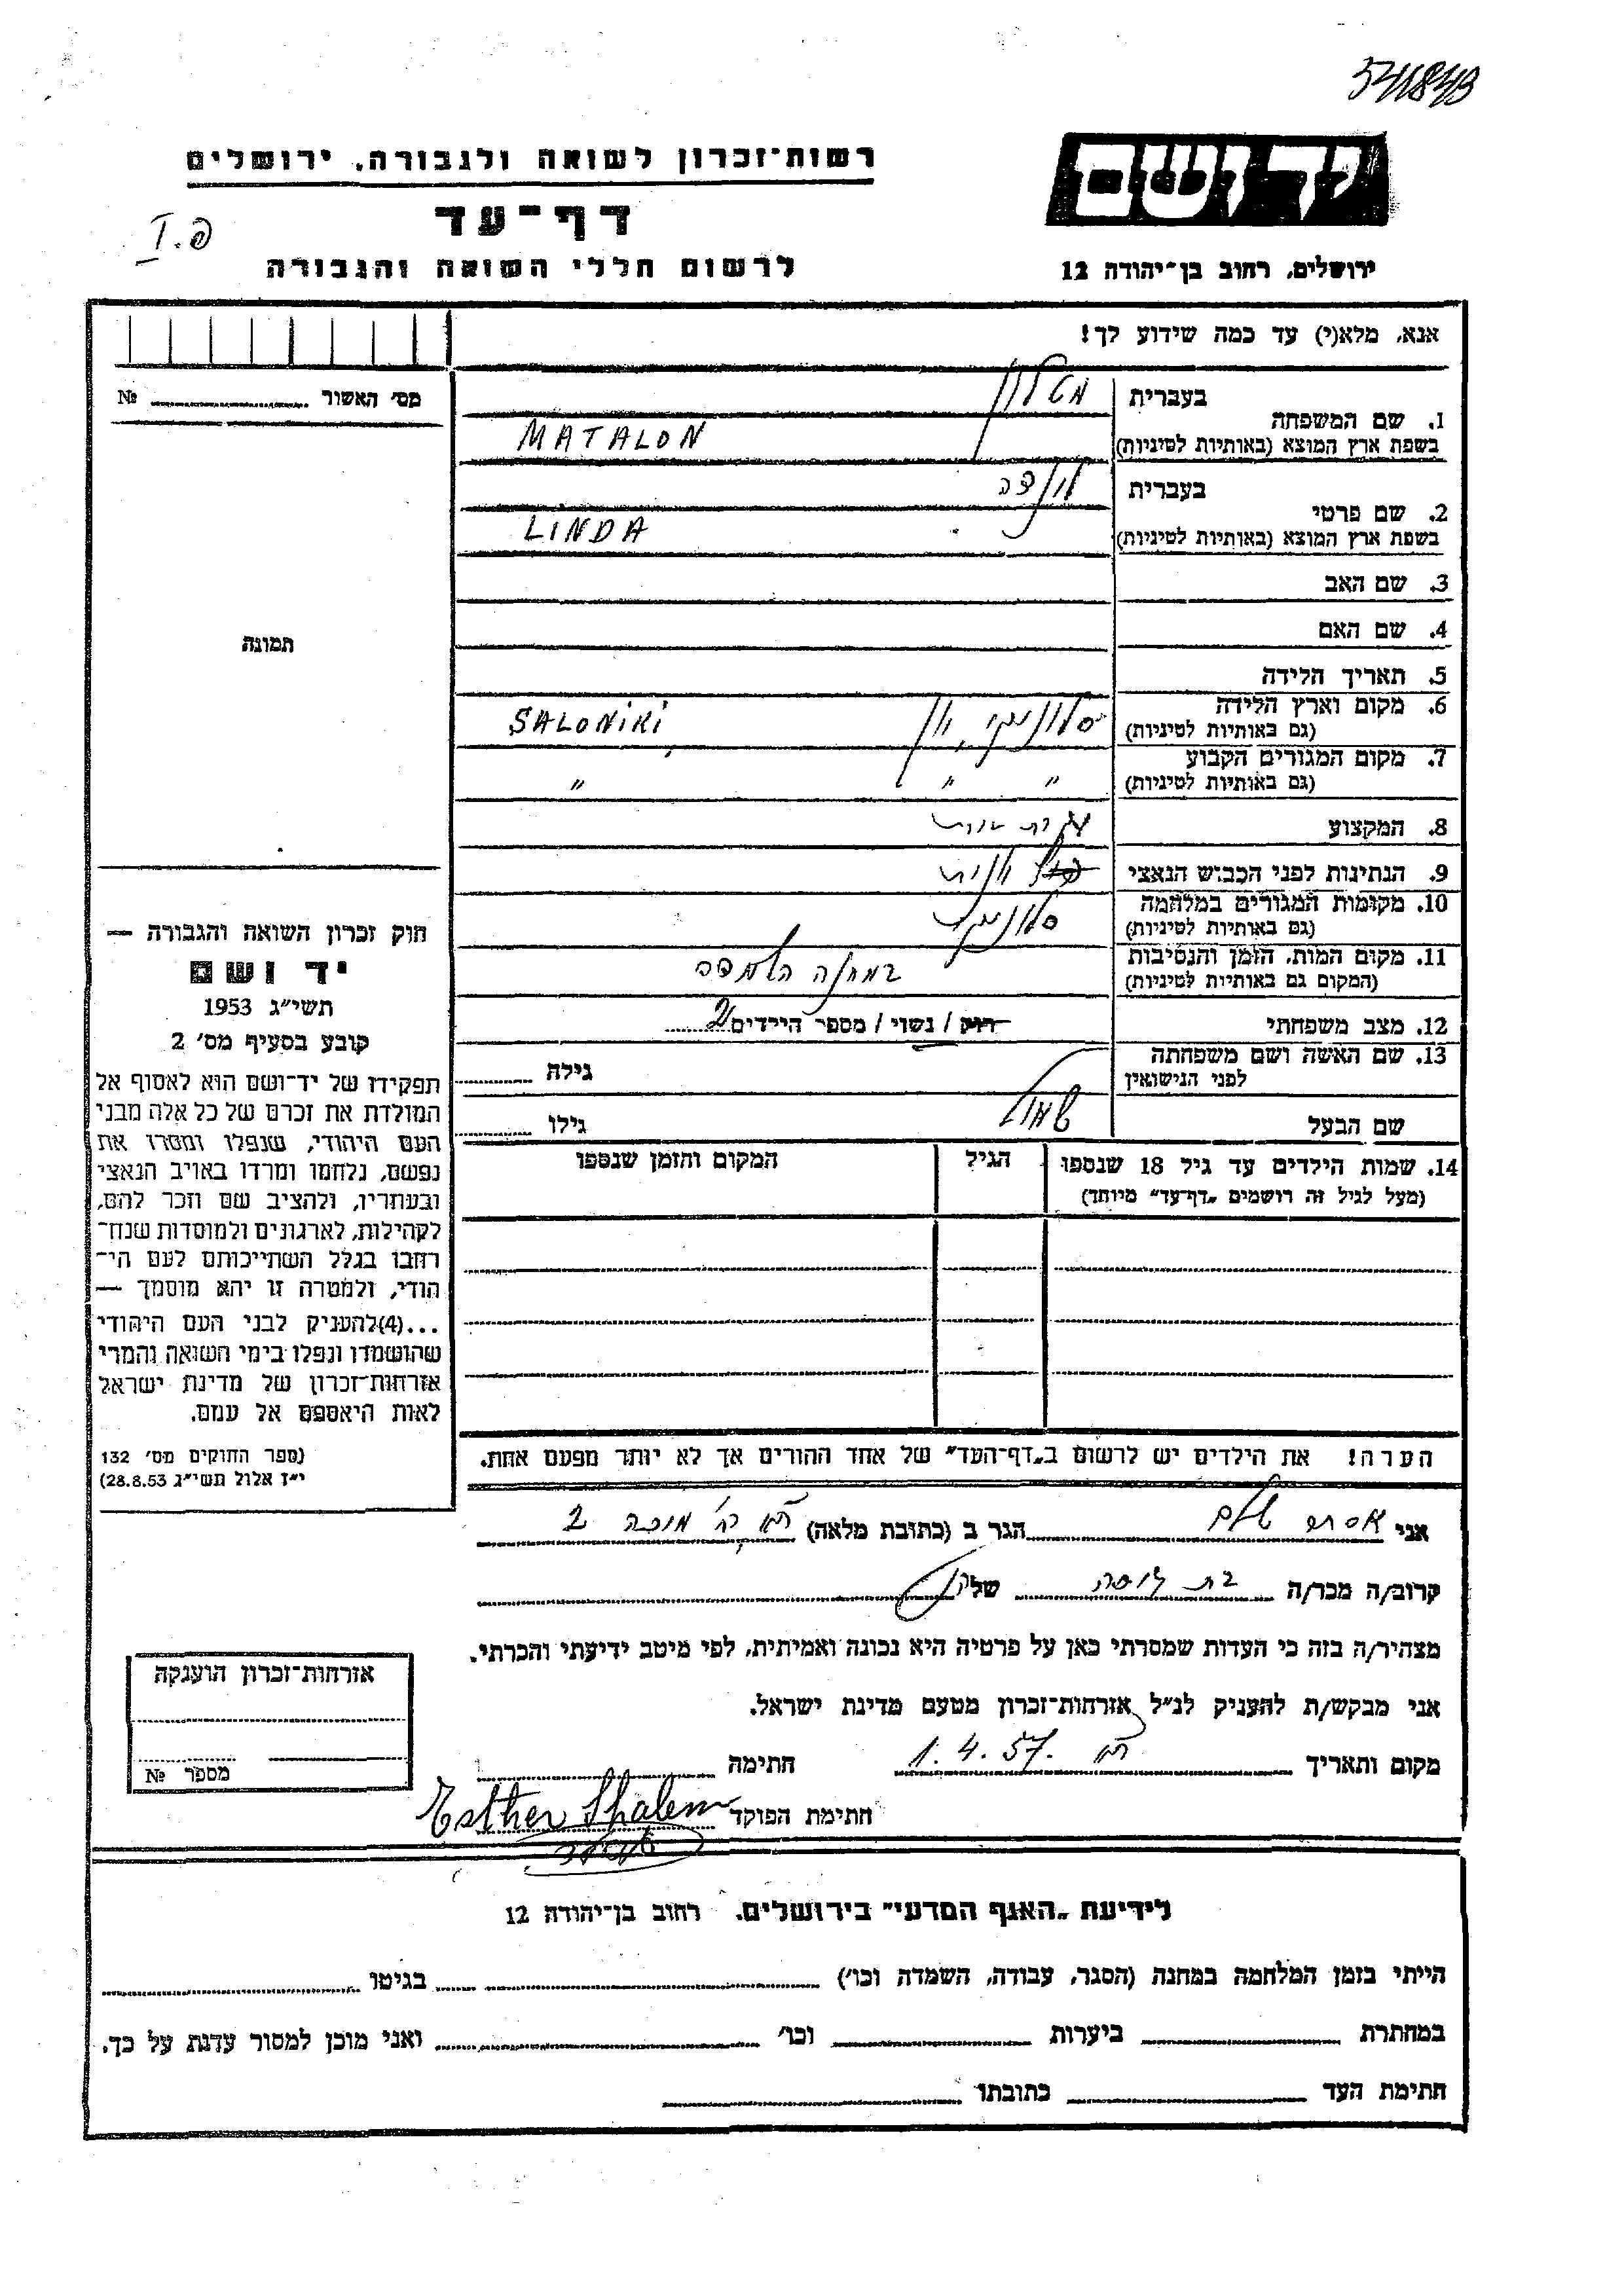 541843
יד ושם
רשות־זכרון לשואה ולגבורה, ירושלים
דף־עד
פ.I
לרשום חללי השואה והגבורה
ירושלים, רחוב בן־יהודה 12
אנא, מלא(י) עד כמה שידוע לך!
מס׳ האשור № 
1. שם המשפחה
בעברית מטלון
בשפת ארץ המוצא (באותיות לטיניות) MATALON
2. שם פרטי
בעברית לינדה
בשפת ארץ המוצא (באותיות לטיניות) LINDA
3. שם האב
4. שם האם
תמונה
5. תאריך הלידה
6. מקום וארץ הלידה סלוניקי, יון SALONIKI
(גם באותיות לטיניות)
7. מקום המגורים הקבוע
(גם באותיות לטיניות) " " "
8. המקצוע עקרת בית
9. הנתינות לפני הכבוש הנאצי יונית
10. מקומות המגורים במלחמה סלוניקי
(גם באותיות לטיניות)
11. מקום המות, הזמן והנסיבות במחנה השמדה
(המקום גם באותיות לטיניות)
12. מצב משפחתי רווק / נשוי / מספר הילדים 2
13. שם האשה ושם משפחתה
לפני הנישואין גילה
שם הבעל שמואל גילו
14. שמות הילדים עד גיל 18 שנספו הגיל המקום והזמן שנספו
(מעל לגיל זה רושמים „דף־עד״ מיוחד)
הערה! את הילדים יש לרשום ב„דף־העד״ של אחד ההורים אך לא יותר מפעם אחת.
חוק זכרון השואה והגבורה —
יד ושם
תשי״ג 1953
קובע בסעיף מס׳ 2
תפקידו של יד־ושם הוא לאסוף אל
המולדת את זכרם של כל אלה מבני
העם היהודי, שנפלו ומסרו את
נפשם, נלחמו ומרדו באויב הנאצי
ובעוזריו, ולהציב שם וזכר להם,
לקהילות, לארגונים ולמוסדות שנח־
רחבו בגלל השתייכותם לעם הי־
הודי, ולמטרה זו יהא מוסמך —
...(4)להעניק לבני העם היהודי
שהושמדו ונפלו בימי השואה והמרי
אזרחות־זכרון של מדינת ישראל
לאות היאספם אל עמם.
(ספר החוקים מס׳ 132
י״ז אלול תשי״ג 28.8.53)
אני אסתר שלם הגר ב (כתובת מלאה) 2
קרוב/ה מכר/ה בת דודה של
מצהיר/ה בזה כי העדות שמסרתי כאן על פרטיה היא נכונה ואמיתית, לפי מיטב ידיעתי והכרתי.
אני מבקש/ת להעניק לנ״ל אזרחות־זכרון מטעם מדינת ישראל.
מקום ותאריך 1.4.57. חתימה
חתימת הפוקד Esther Shalem
אזרחות־זכרון הוענקה
מספר №
לידיעת „האגף המדעי״ בירושלים. רחוב בן־יהודה 12
הייתי בזמן המלחמה במחנה (הסגר, עבודה, השמדה וכו׳) בגיטו
במחתרת ביערות וכו׳ ואני מוכן למסור עדות על כך.
חתימת העד כתובתו